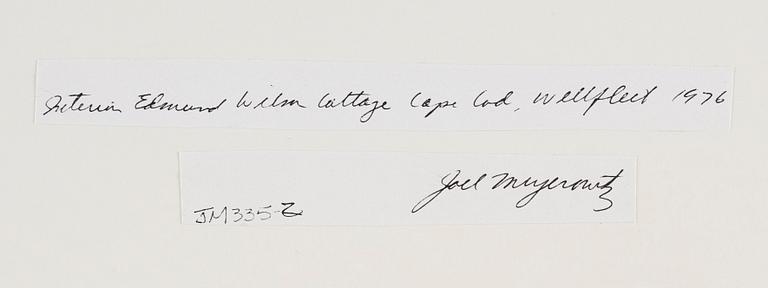 Interior Edmund Wilson Cottage Cape Cod, Wellfleet 1976
Joel Meyerowitz
JM335-Z